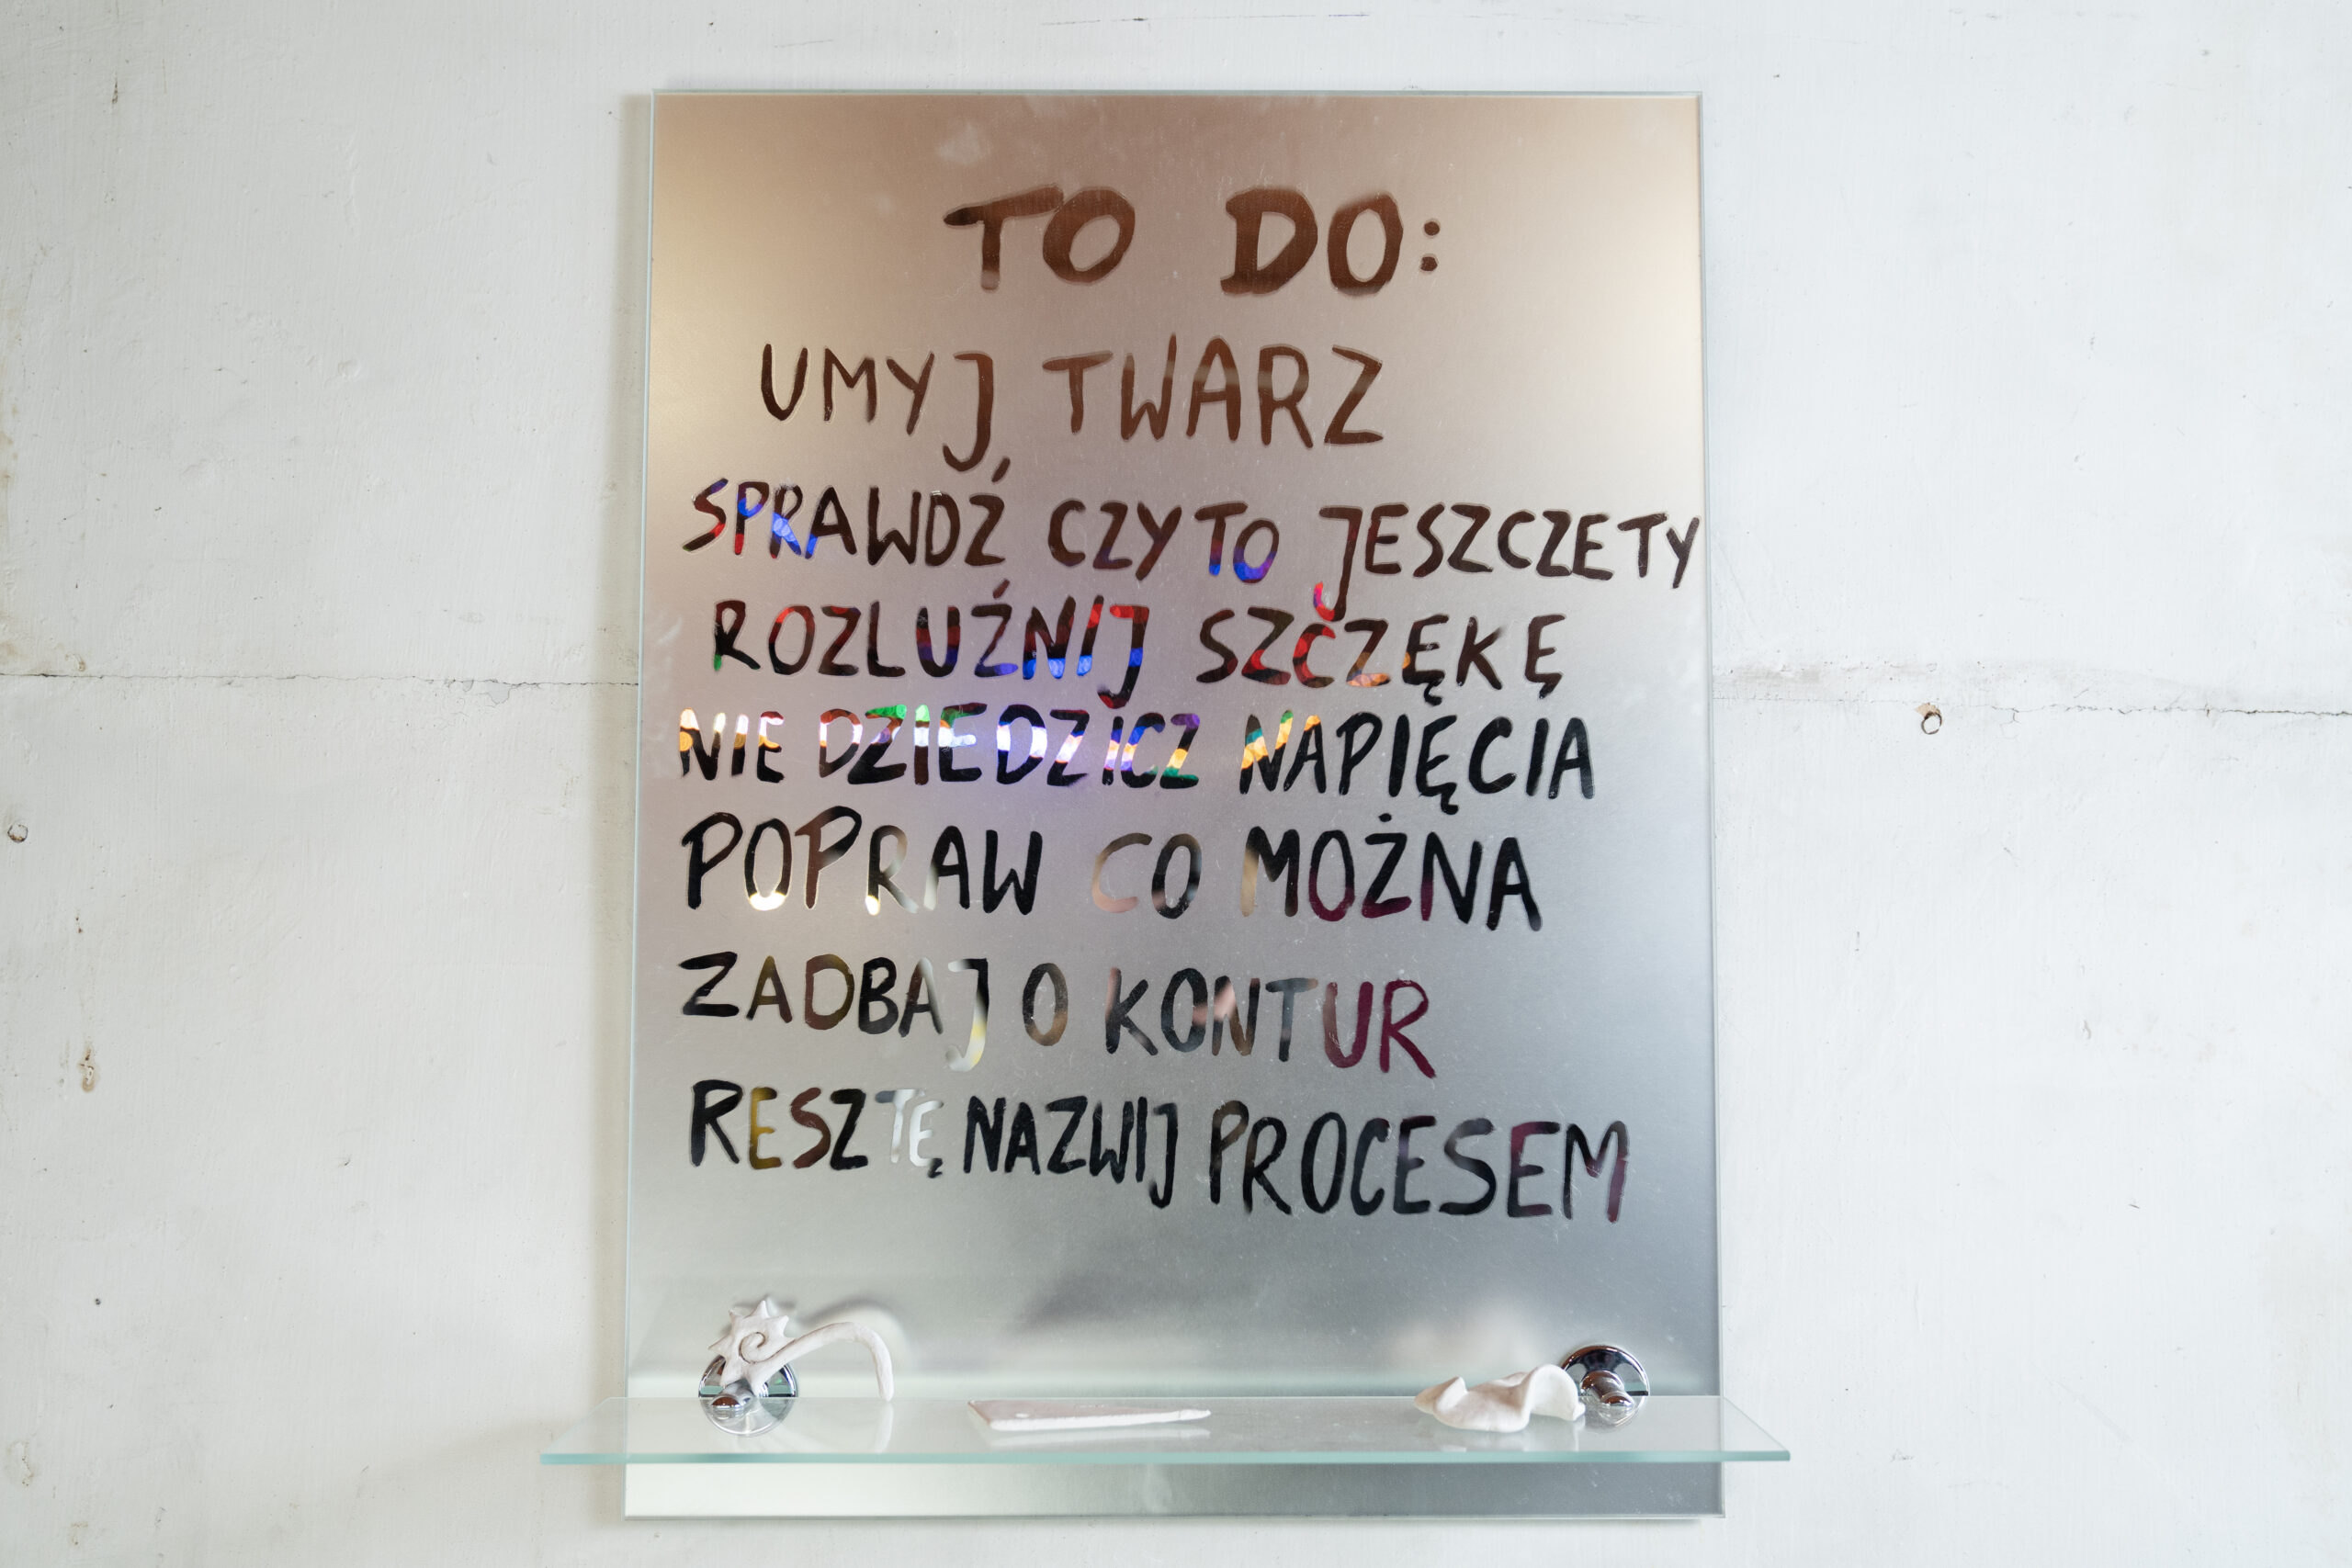 TO DO:
UMYJ TWARZ
SPRAWDŹ CZY TO JESZCZE TY
ROZLUŹNIJ SZCZĘKĘ
NIE DZIEDZICZ NAPIĘCIA
POPRAW CO MOŻNA
ZADBAJ O KONTUR
RESZTĘ NAZWIJ PROCESEM